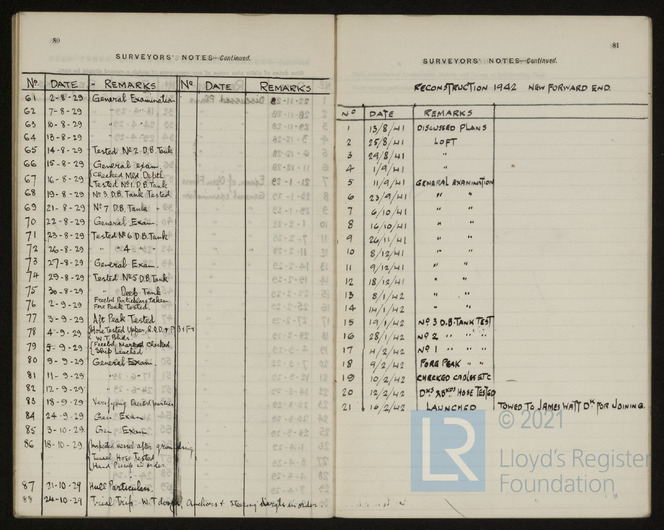 80
SURVEYORS' NOTES—Continued.
No. DATE - REMARKS No. DATE REMARKS
61 2-8-29 General Examination
62 7-8-29 " "
63 8-8-29 " "
64 13-8-29 " "
65 14-8-29 Tested No 2 D.B. Tank
66 15-8-29 General exam.
67 16-8-29 Checked Mld Depth
Tested No 1. D.B. Tank
68 19-8-29 No 3 D.B. Tank Tested
69 21-8-29 No 7 D.B. Tank "
70 22-8-29 General Exam.
71 23-8-29 Tested No 6 D.B. Tank
72 26-8-29 " " 4 "
73 27-8-29 General Exam.
74 29-8-29 Tested No 5 D.B. Tank
75 30-8-29 " Deep Tank
76 2-9-29 Freebd Particulars taken
Fore Peak Tested.
77 3-9-29 Aft Peak Tested
78 4-9-29 Hose Tested Upper,
W.T. Bhds.
79 5-9-29 Freebd Marked Checked
Ship Launched
80 9-9-29 General Exam.
81 11-9-29 " "
82 12-9-29 " "
83 18-9-29 Verifying
84 24-9-29 Gen. Exam.
85 3-10-29 Gen. Exam
86 18-10-29 Inspected vessel after grounding
Tunnel Hose Tested
Hand Pumps in order
87 21-10-29 Hull Particulars.
88 24-10-29 Trial Trip. W.T doors, Anchors & Steering in order
81
SURVEYORS' NOTES—Continued.
RECONSTRUCTION 1942 NEW FORWARD END.
No DATE REMARKS
1 13/8/41 DISCUSSED PLANS
2 25/8/41 LOFT
3 29/8/41 "
4 1/9/41 "
5 11/9/41 GENERAL EXAMINATION
6 23/9/41 " "
7 6/10/41 " "
8 16/10/41 " "
9 26/11/41 " "
10 8/12/41 " "
11 9/12/41 " "
12 18/12/41 " "
13 8/1/42 " "
14 14/1/42 " "
15 19/1/42 No 3 D.B. TANK TEST
16 28/1/42 No 2 " " "
17 4/2/42 No 1 " " "
18 9/2/42 FORE PEAK " "
19 10/2/42 CHECKED CABLES ETC
20 12/2/42 DKS & BKDS HOSE TESTED
21 16/2/42 LAUNCHED TOWED TO JAMES WATT DK FOR JOINING.
© 2021
LR
Lloyd's Register
Foundation